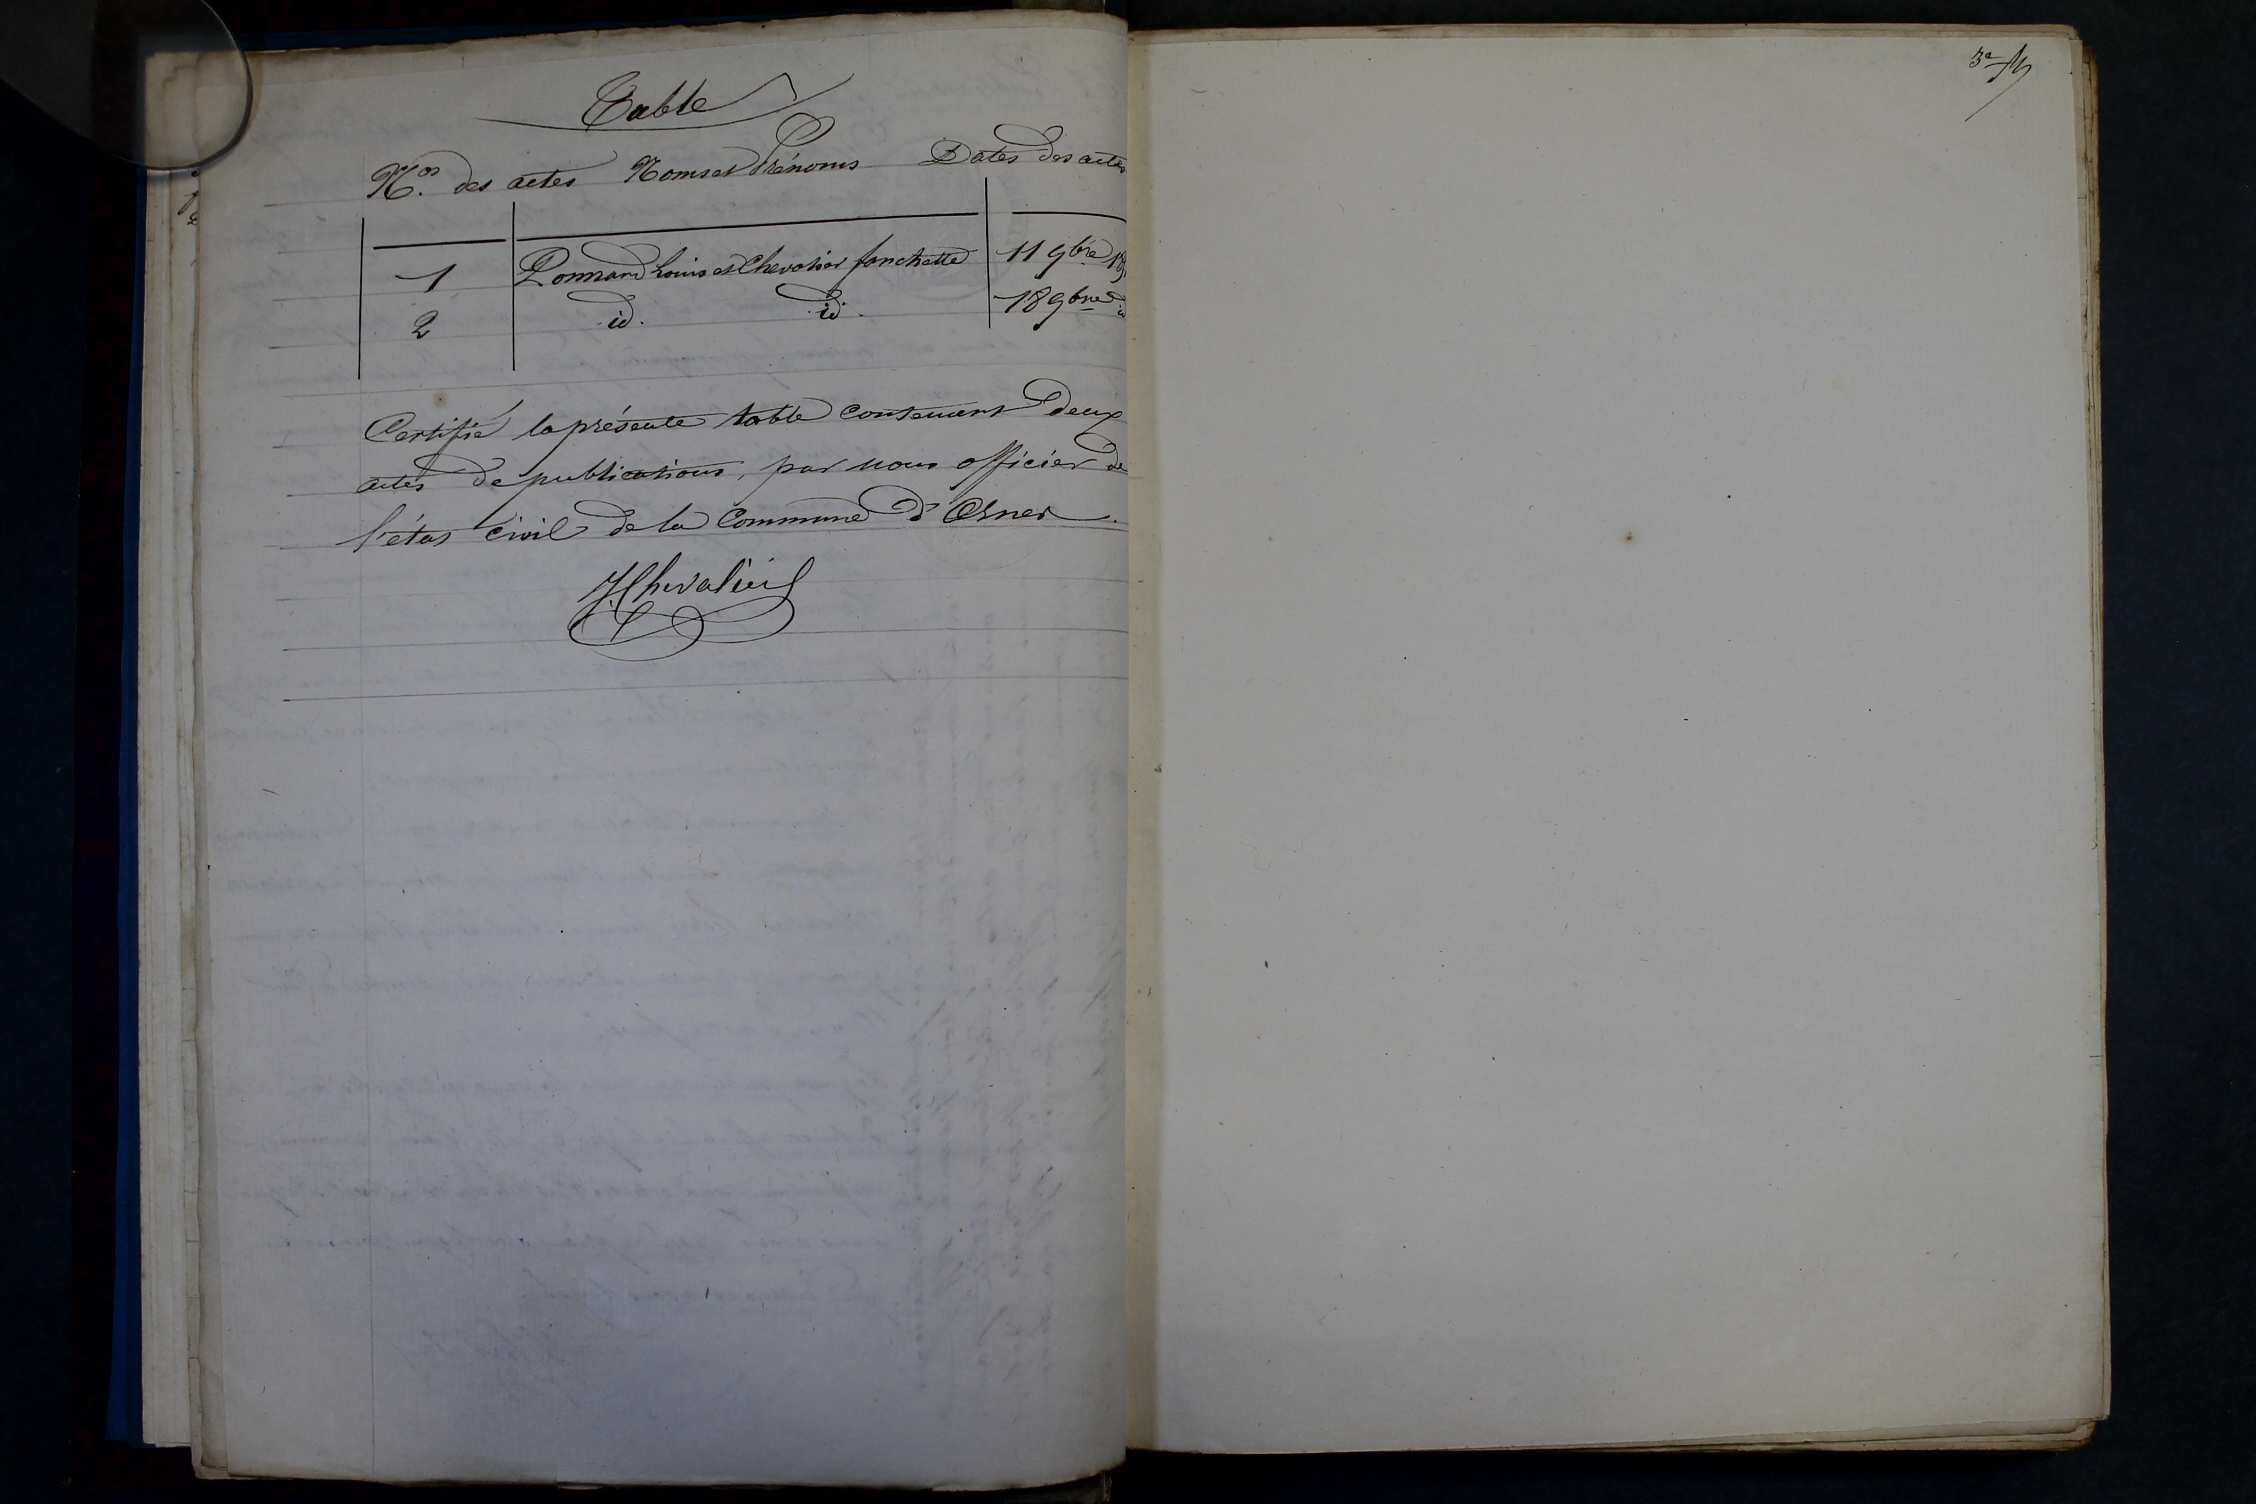 Table
Nos. des actes Noms et Prénoms Dates des actes
1 Ponnard Louis et Chevalier fanchette 11 9bre 18
2 id. id. 18 9bre id
Certifié la présente table contenant deux
actes de publications, par nous officier de
l'état civil de la Commune d'Ornex.
J Chevalier
3e